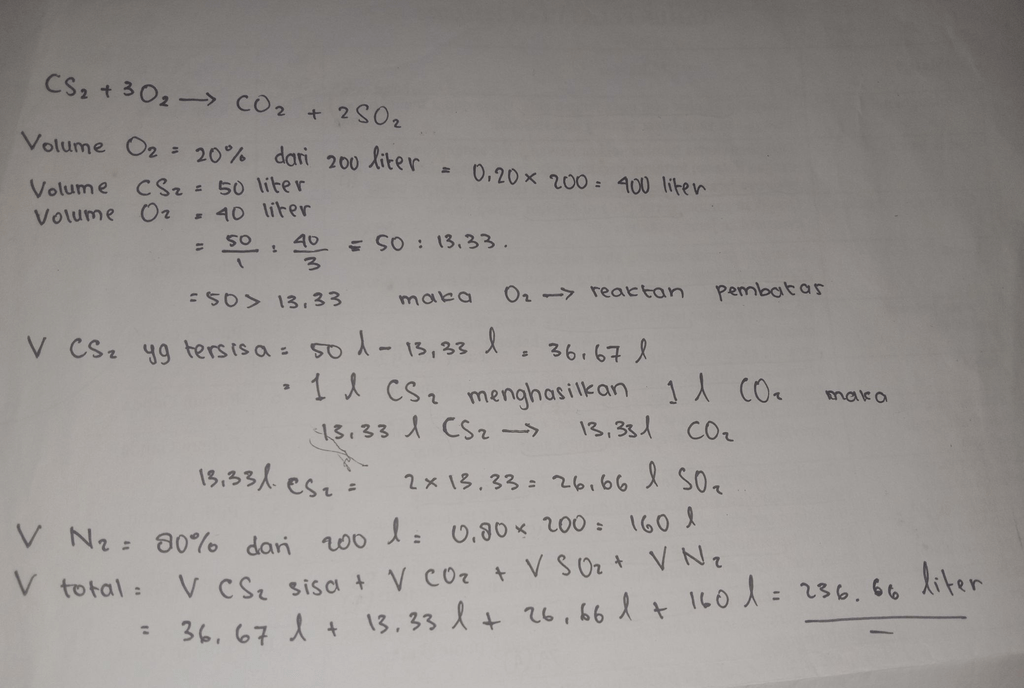 CS₂ + 3O₂ → CO₂ + 2SO₂
Volume O₂ = 20% dari 200 liter = 0,20 × 200 = 400 liter
Volume CS₂ = 50 liter
Volume O₂ = 40 liter
= 50/1 : 40/3 = 50 : 13.33.
= 50 > 13,33 maka O₂ → reaktan pembatas
V CS₂ yg tersisa = 50 l - 13,33 l = 36,67 l
= 1 l CS₂ menghasilkan 1 l CO₂ maka
13,33 l CS₂ → 13,33 l CO₂
13,33 l. CS₂ = 2 × 13.33 = 26,66 l SO₂
V N₂ = 80% dari 200 l = 0,80 × 200 = 160 l
V total = V CS₂ sisa + V CO₂ + V SO₂ + V N₂
= 36,67 l + 13,33 l + 26,66 l + 160 l = 236.66 liter